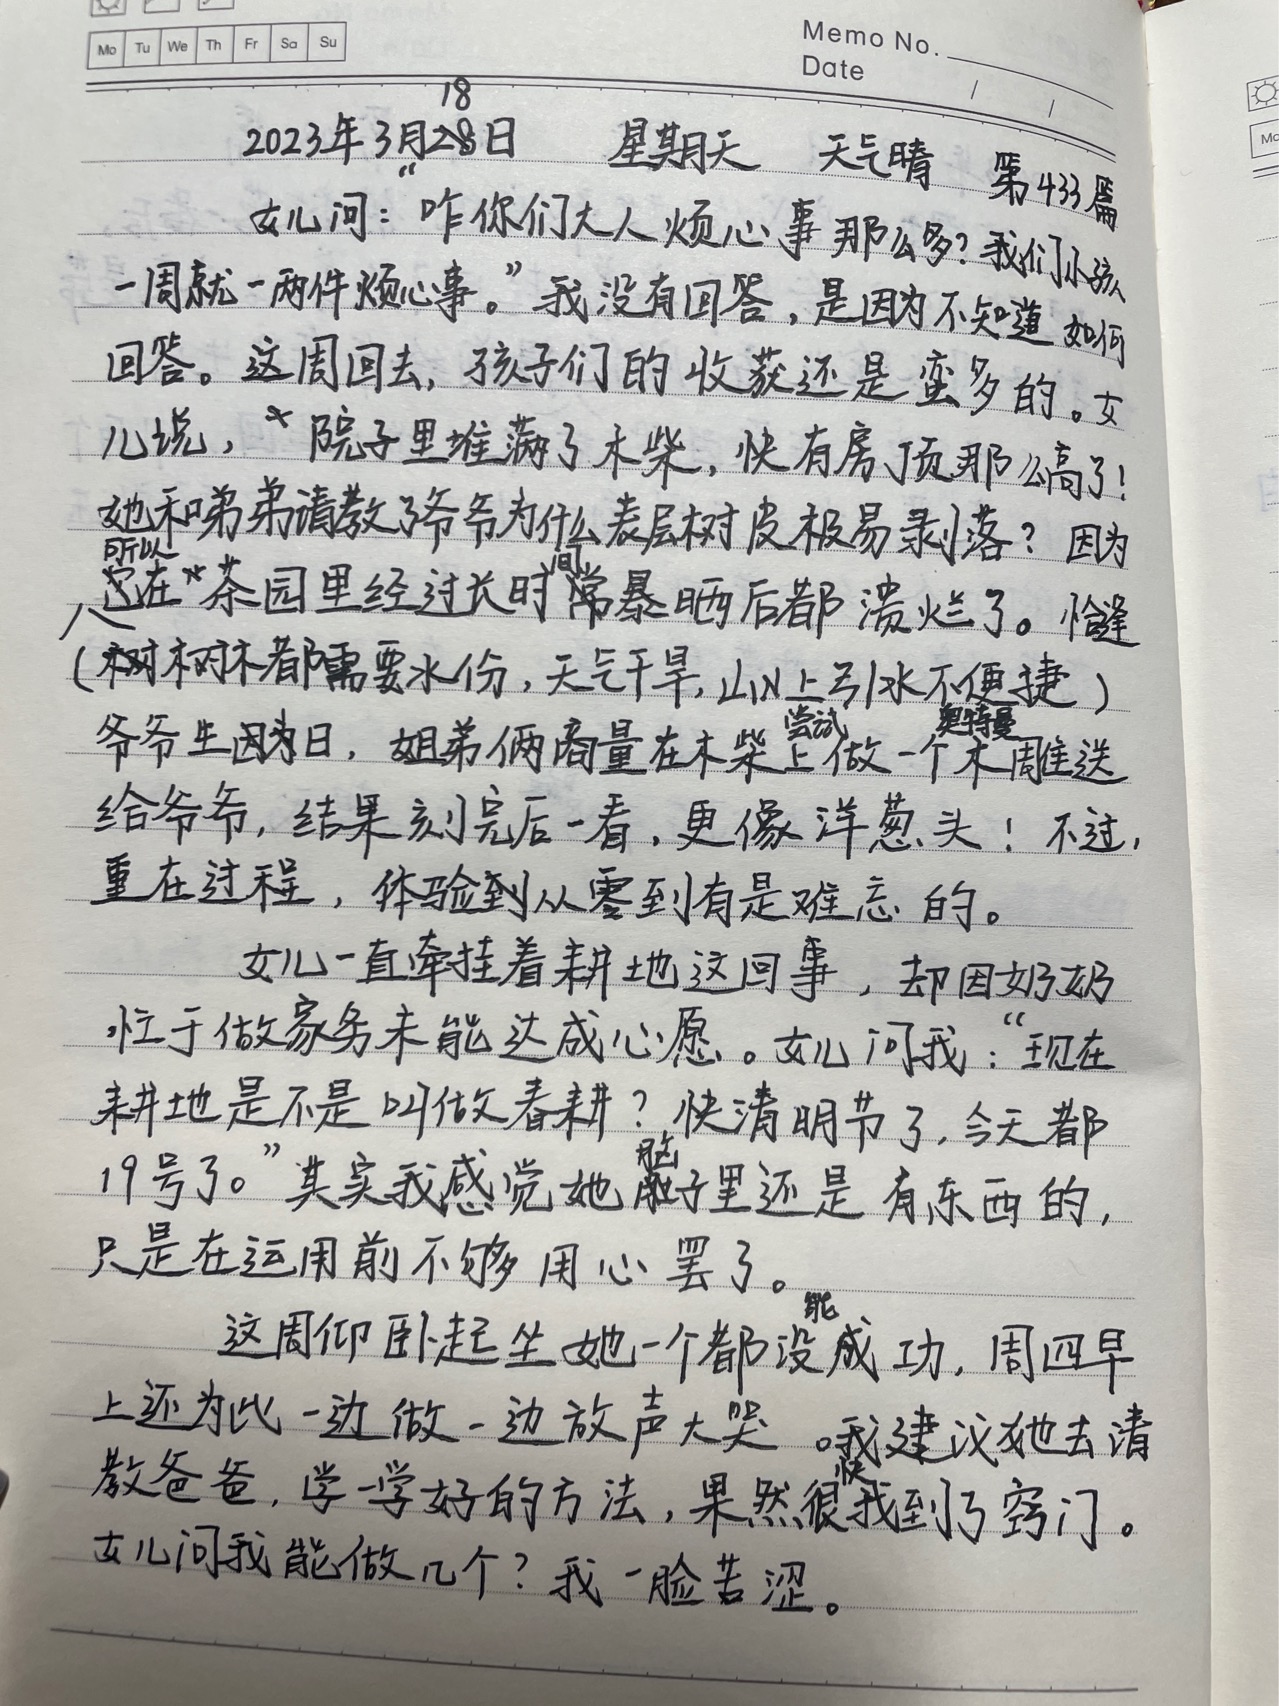 Mo Tu We Th Fr Sa Su
Memo No.
Date / /
18
2023年3月28日 星期天 天气晴 第433篇
女儿问：“咋你们大人烦心事那么多？我们小孩
一周就一两件烦心事。”我没有回答，是因为不知道如何
回答。这周回去，孩子们的收获还是蛮多的。女
儿说，“院子里堆满了木柴，快有房顶那么高了！
她和弟弟请教了爷爷为什么表层树皮极易剥落？因为
所以 间
它在*茶园里经过长时常暴晒后都溃烂了。恰逢
（树树木都需要水份，天气干旱，山上引水不便捷）
尝试 奥特曼
爷爷生日，姐弟俩商量在木柴上做一个木雕送
给爷爷，结果刻完后一看，更像洋葱头！不过，
重在过程，体验到从零到有是难忘的。
女儿一直牵挂着耕地这回事，却因奶奶
忙于做家务未能达成心愿。女儿问我：“现在
耕地是不是叫做春耕？快清明节了，今天都
脑
19号了。”其实我感觉她肚子里还是有东西的，
只是在运用前不够用心罢了。
能
这周仰卧起坐她一个都没成功，周四早
上还为此一边做一边放声大哭。我建议她去请
快
教爸爸，学一学好的方法，果然很找到了窍门。
女儿问我能做几个？我一脸苦涩。